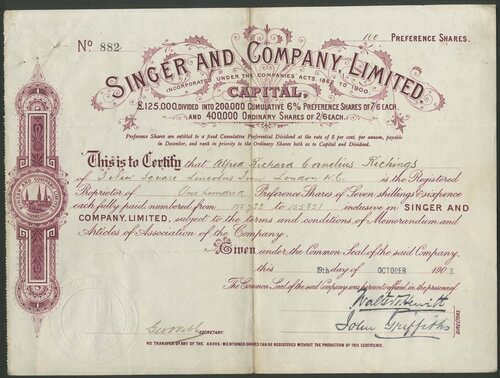 100 PREFERENCE SHARES.
No 882
SINGER AND COMPANY LIMITED
INCORPORATED UNDER THE COMPANIES' ACTS, 1862 TO 1900
CAPITAL,
£125,000, DIVIDED INTO 200,000 CUMULATIVE 6% PREFERENCE SHARES OF 7/6 EACH,
AND 400,000 ORDINARY SHARES OF 2/6 EACH.
Preference Shares are entitled to a fixed Cumulative Preferential Dividend at the rate of 6 per cent. per annum, payable
in December, and rank in priority to the Ordinary Shares both as to Capital and Dividend.
This is to Certify that Alfred Richard Cornelius Richings
of New Square Lincolns Inn London W.C. is the Registered
Proprietor of One hundred Preference Shares of Seven shillings & sixpence
each fully paid numbered from to inclusive in SINGER AND
COMPANY, LIMITED, subject to the terms and conditions of Memorandum and
Articles of Association of the Company.
Given under the Common Seal of the said Company,
this 19th day of OCTOBER 1903
The Common Seal of the said Company was hereunto affixed in the presence of
Geo Webb SECRETARY
John Griffiths
DIRECTORS.
NO TRANSFER OF ANY OF THE ABOVE-MENTIONED SHARES CAN BE REGISTERED WITHOUT THE PRODUCTION OF THIS CERTIFICATE.